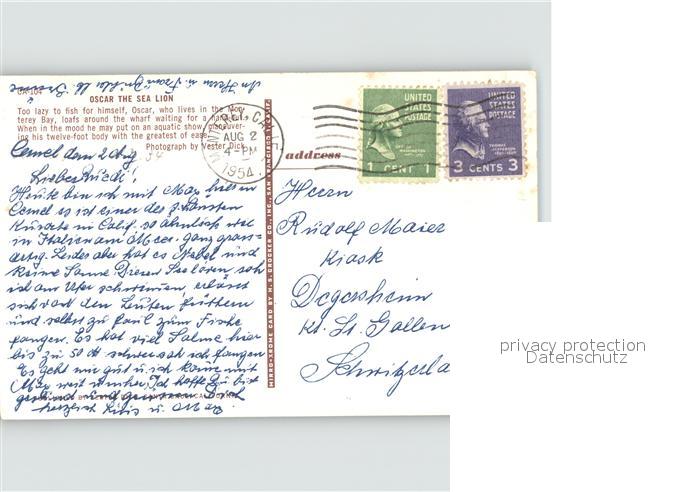 CA-104
OSCAR THE SEA LION
Too lazy to fish for himself, Oscar, who lives in the Mon-
terey Bay, loafs around the wharf waiting for a
When in the mood he may put on an aquatic show,
ing his twelve-foot body with the greatest of ease.
Photograph by Vester Dick
Carmel dem 2 Aug 54
Heute bin ich mit Max hier in
Carmel es ist einer der schönsten
Kurorte in Calif. so ähnlich wie
in Italien am Meer. ganz gross-
artig. Leider aber hat es Nebel und
keine Sonne Diesen Seelöwen sah
ich am Ufer schwimmen, er lässt
sich von den Leuten füttern
und selbst zu faul zum Fische
fangen. Es hat viel Salme hier
bis zu 50 schwer sah ich fangen
Es geht mir gut u. ich komme mit
Max weit umher, Ich hoffe Du bist
gesund und
herzlich u. Max
MIRRO-KROME CARD BY H. S. CROCKER CO., INC., SAN FRANCISCO 1, CALIF.
CALIF.
AUG 2
4-PM
1954
address
UNITED
STATES
POSTAGE
1 CENT 1
UNITED
STATES
POSTAGE
3 CENTS 3
Herrn
Rudolf Maier
Kiosk
Degersheim
Kt. St. Gallen
Schweizerla
privacy protection
Datenschutz